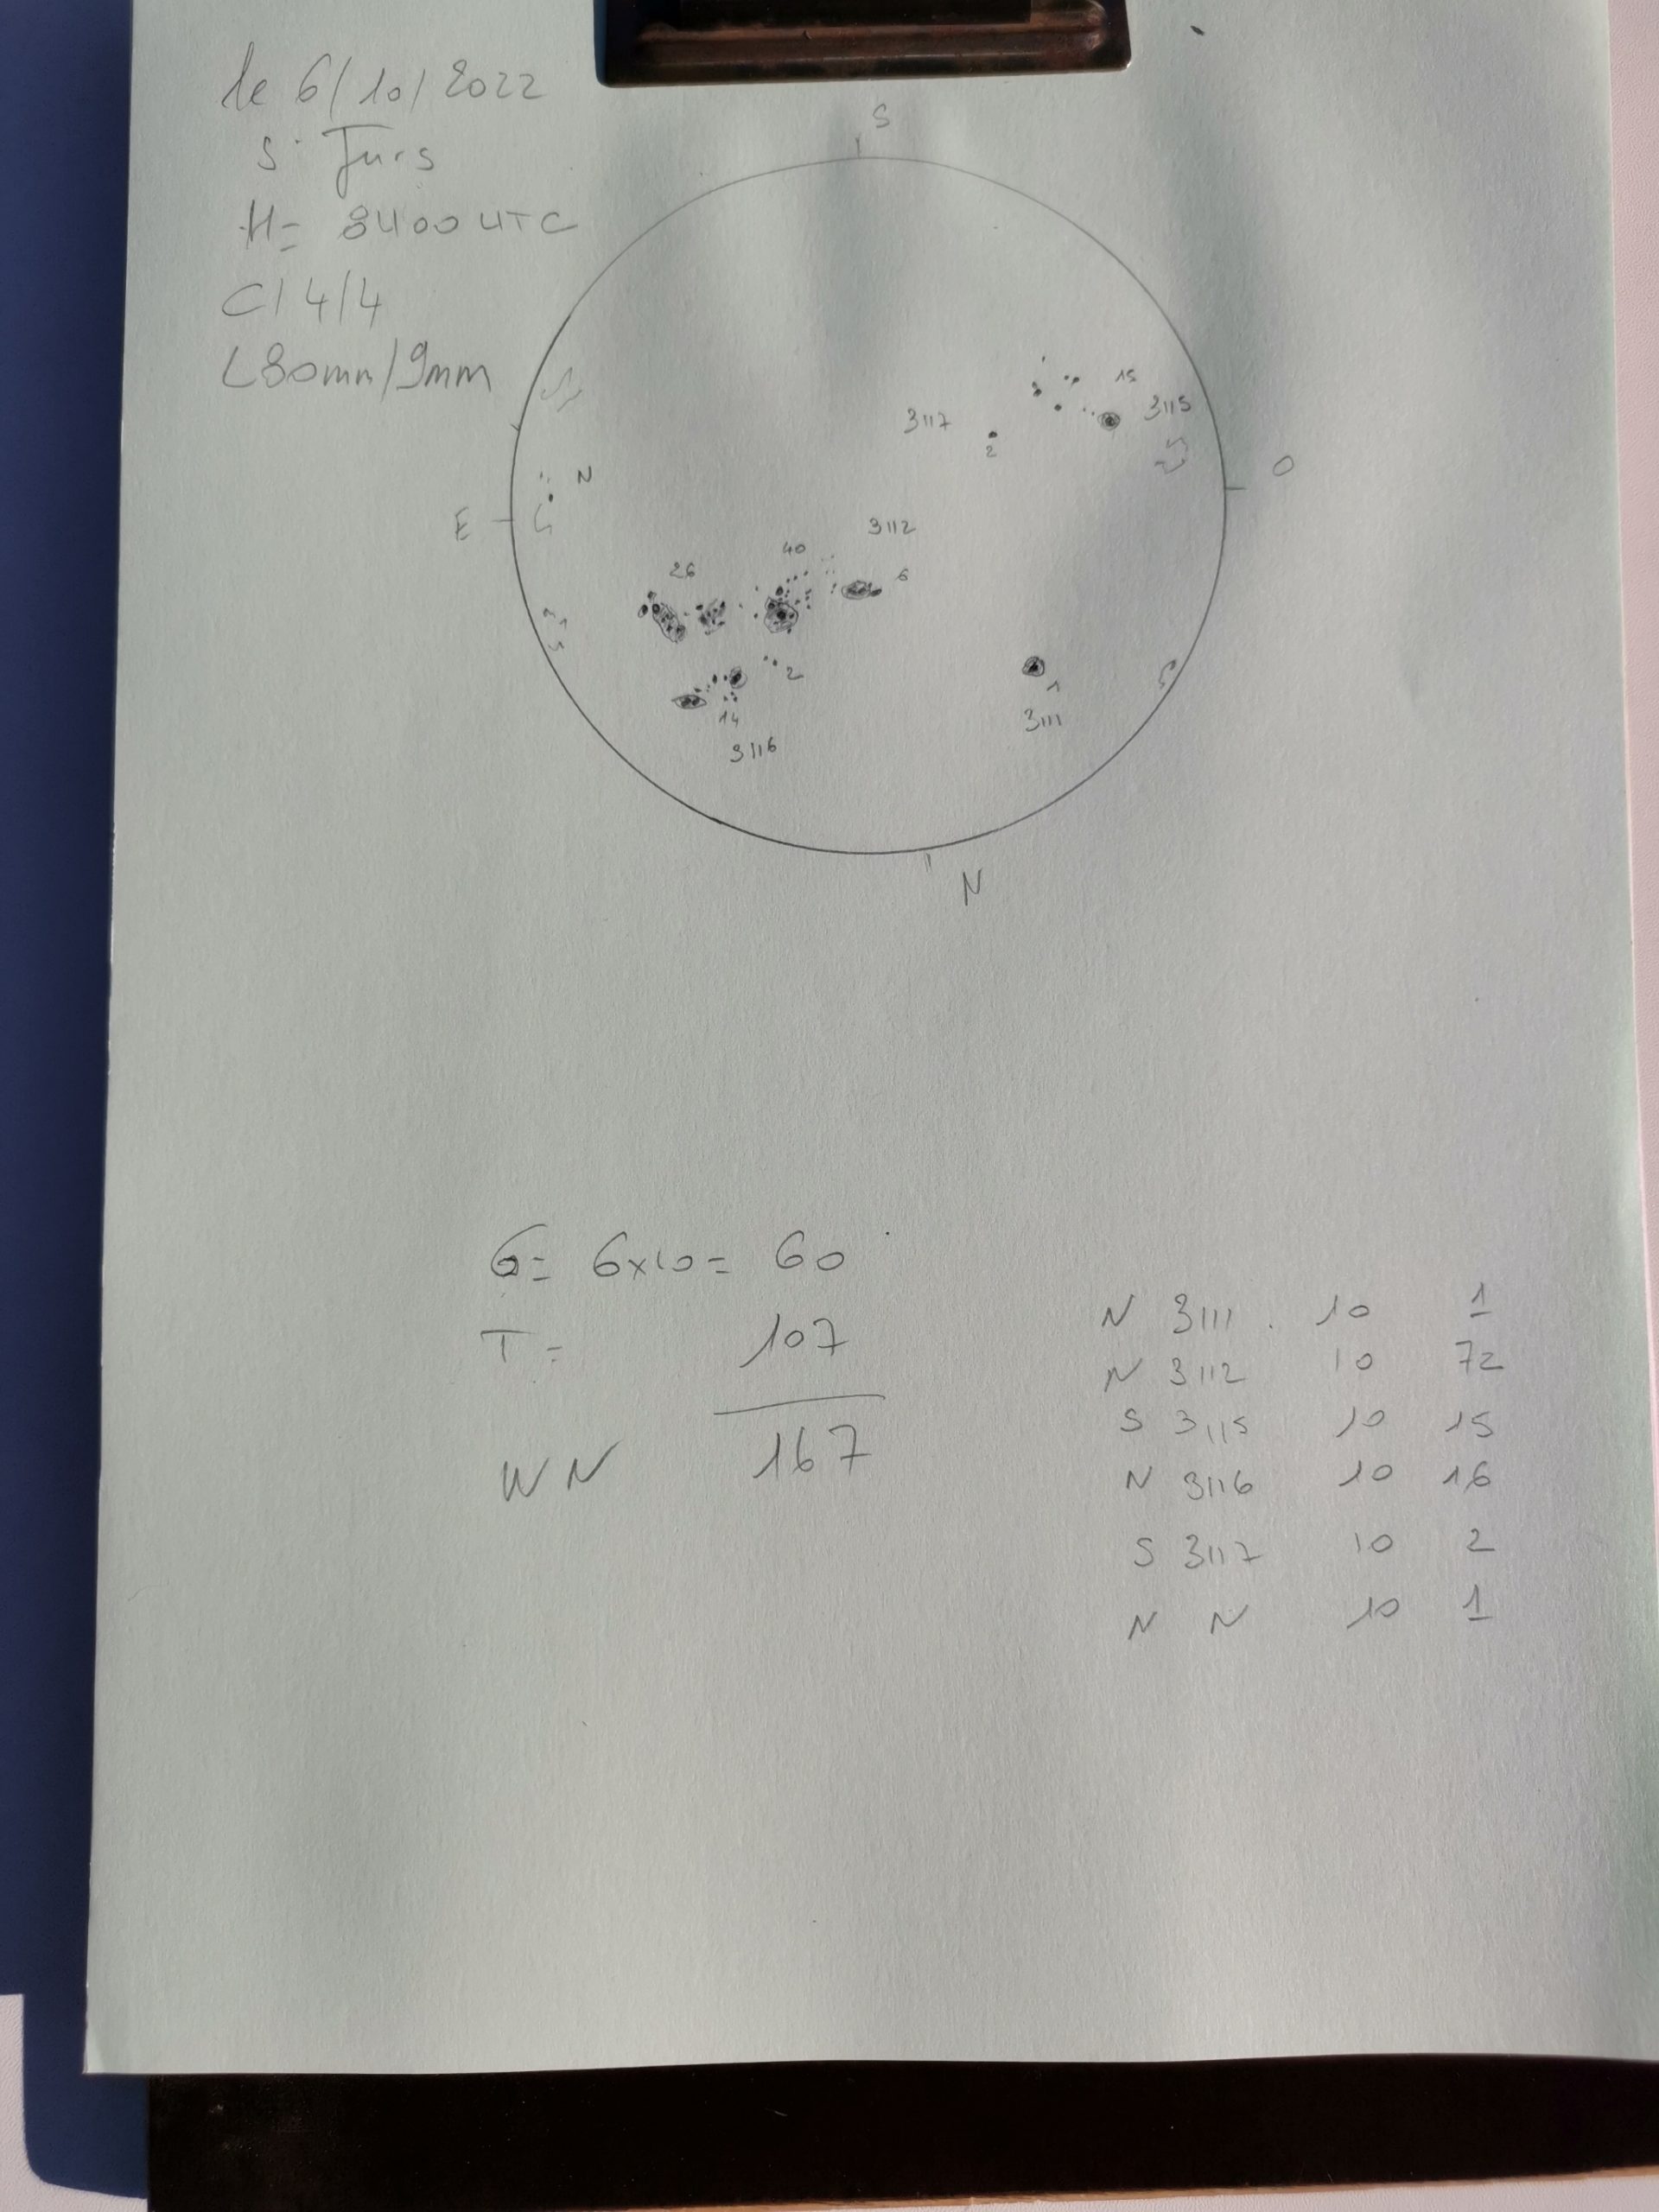 le 6/10/2022
S. Turs
H= 8H00 UTC
C/ 4/4
L80mm/9mm
S
15
3117
3115
2
O
N
E
3112
40
26
6
2
1
14
3111
3116
N
G= 6x10= 60
T= 107
WN 167
N 3111 . 10 1
N 3112 10 72
S 3115 10 15
N 3116 10 16
S 3117 10 2
N N 10 1